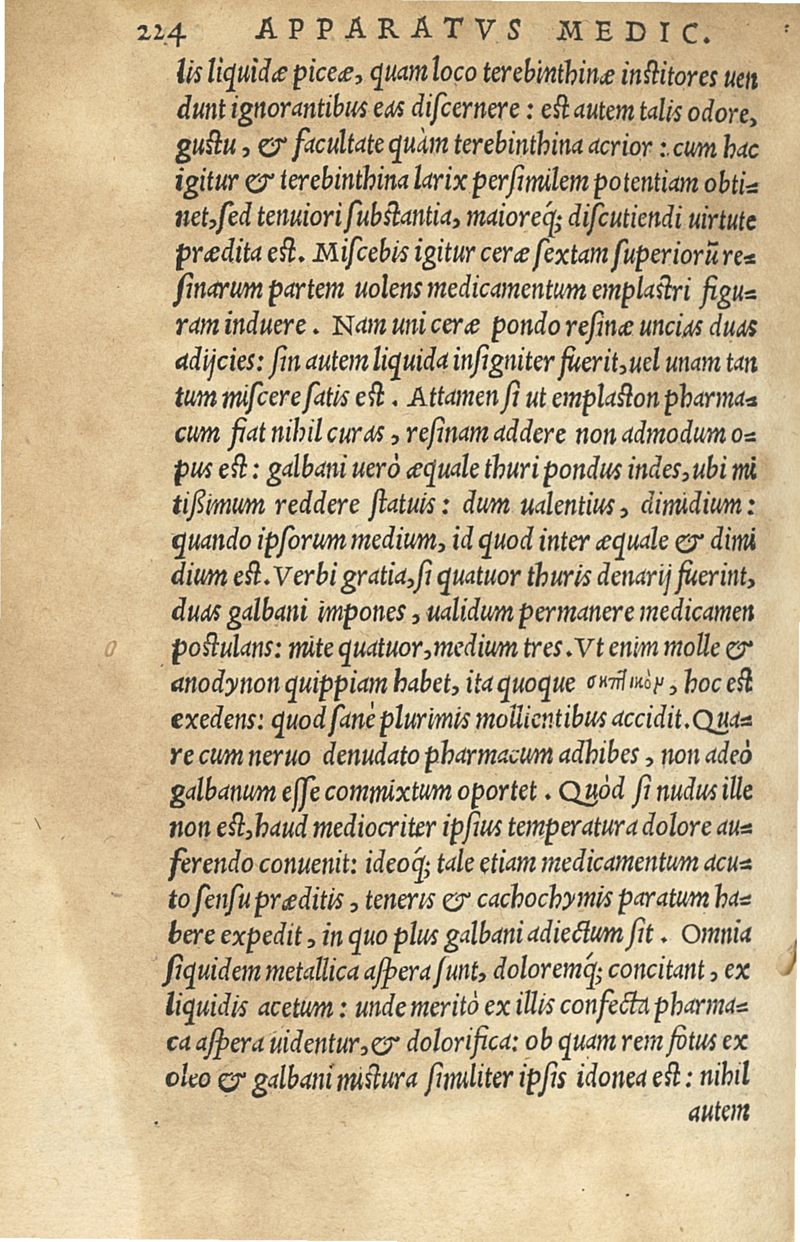 224 APPARATVS MEDIC.
lis liquidæ piceæ, quam loco terebinthinæ institores uen
dunt ignorantibus eas discernere : est autem talis odore,
gustu, & facultate quàm terebinthina acrior : cum hac
igitur & terebinthina larix persimilem potentiam obti=
net, sed tenuiori substantia, maioreq́; discutiendi uirtute
prædita est. Miscebis igitur ceræ sextam superiorũ re=
sinarum partem uolens medicamentum emplastri figu=
ram induere. Nam uni ceræ pondo resinæ uncias duas
adijcies: sin autem liquida insigniter fuerit, uel unam tan
tum miscere satis est. Attamen si ut emplaston pharma=
cum fiat nihil curas, resinam addere non admodum o=
pus est: galbani uerò æquale thuri pondus indes, ubi mi
tißimum reddere statuis: dum ualentius, dimidium:
quando ipsorum medium, id quod inter æquale & dimi
dium est. Verbi gratia, si quatuor thuris denarij fuerint,
duas galbani impones, ualidum permanere medicamen
postulans: mite quatuor, medium tres. Vt enim molle &
anodynon quippiam habet, ita quoque σηπτικὸν, hoc est
exedens: quod sanè plurimis mollientibus accidit. Qua=
re cum neruo denudato pharmacum adhibes, non adeò
galbanum esse commixtum oportet. Quòd si nudus ille
non est, haud mediocriter ipsius temperatura dolore au=
ferendo conuenit: ideoq́; tale etiam medicamentum acu=
to sensu præditis, teneris & cachochymis paratum ha=
bere expedit, in quo plus galbani adiectum sit. Omnia
siquidem metallica aspera sunt, doloremq́; concitant, ex
liquidis acetum: unde meritò ex illis confecta pharma=
ca aspera uidentur, & dolorifica: ob quam rem fotus ex
oleo & galbani mistura similiter ipsis idonea est: nihil
autem